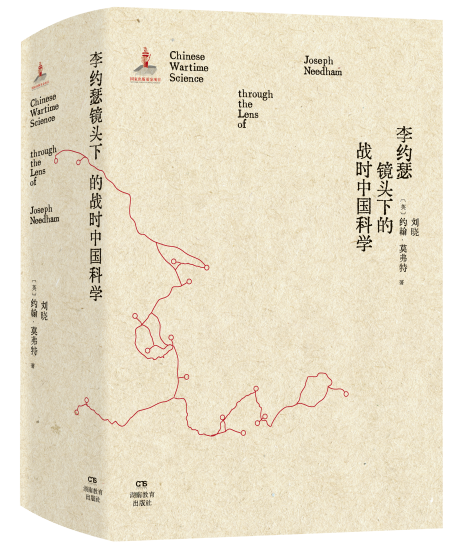 Chinese
Wartime
Science
through
the
Lens
of
Joseph
Needham
李约瑟镜头下 的战时中国科学
〔英〕约翰·莫弗特 著
刘晓
湖南教育
出版社
Chinese
Wartime
Science
through
the
Lens
of
Joseph
Needham
李约瑟
镜头下的
战时中国科学
刘晓
〔英〕约翰·莫弗特 著
湖南教育
出版社